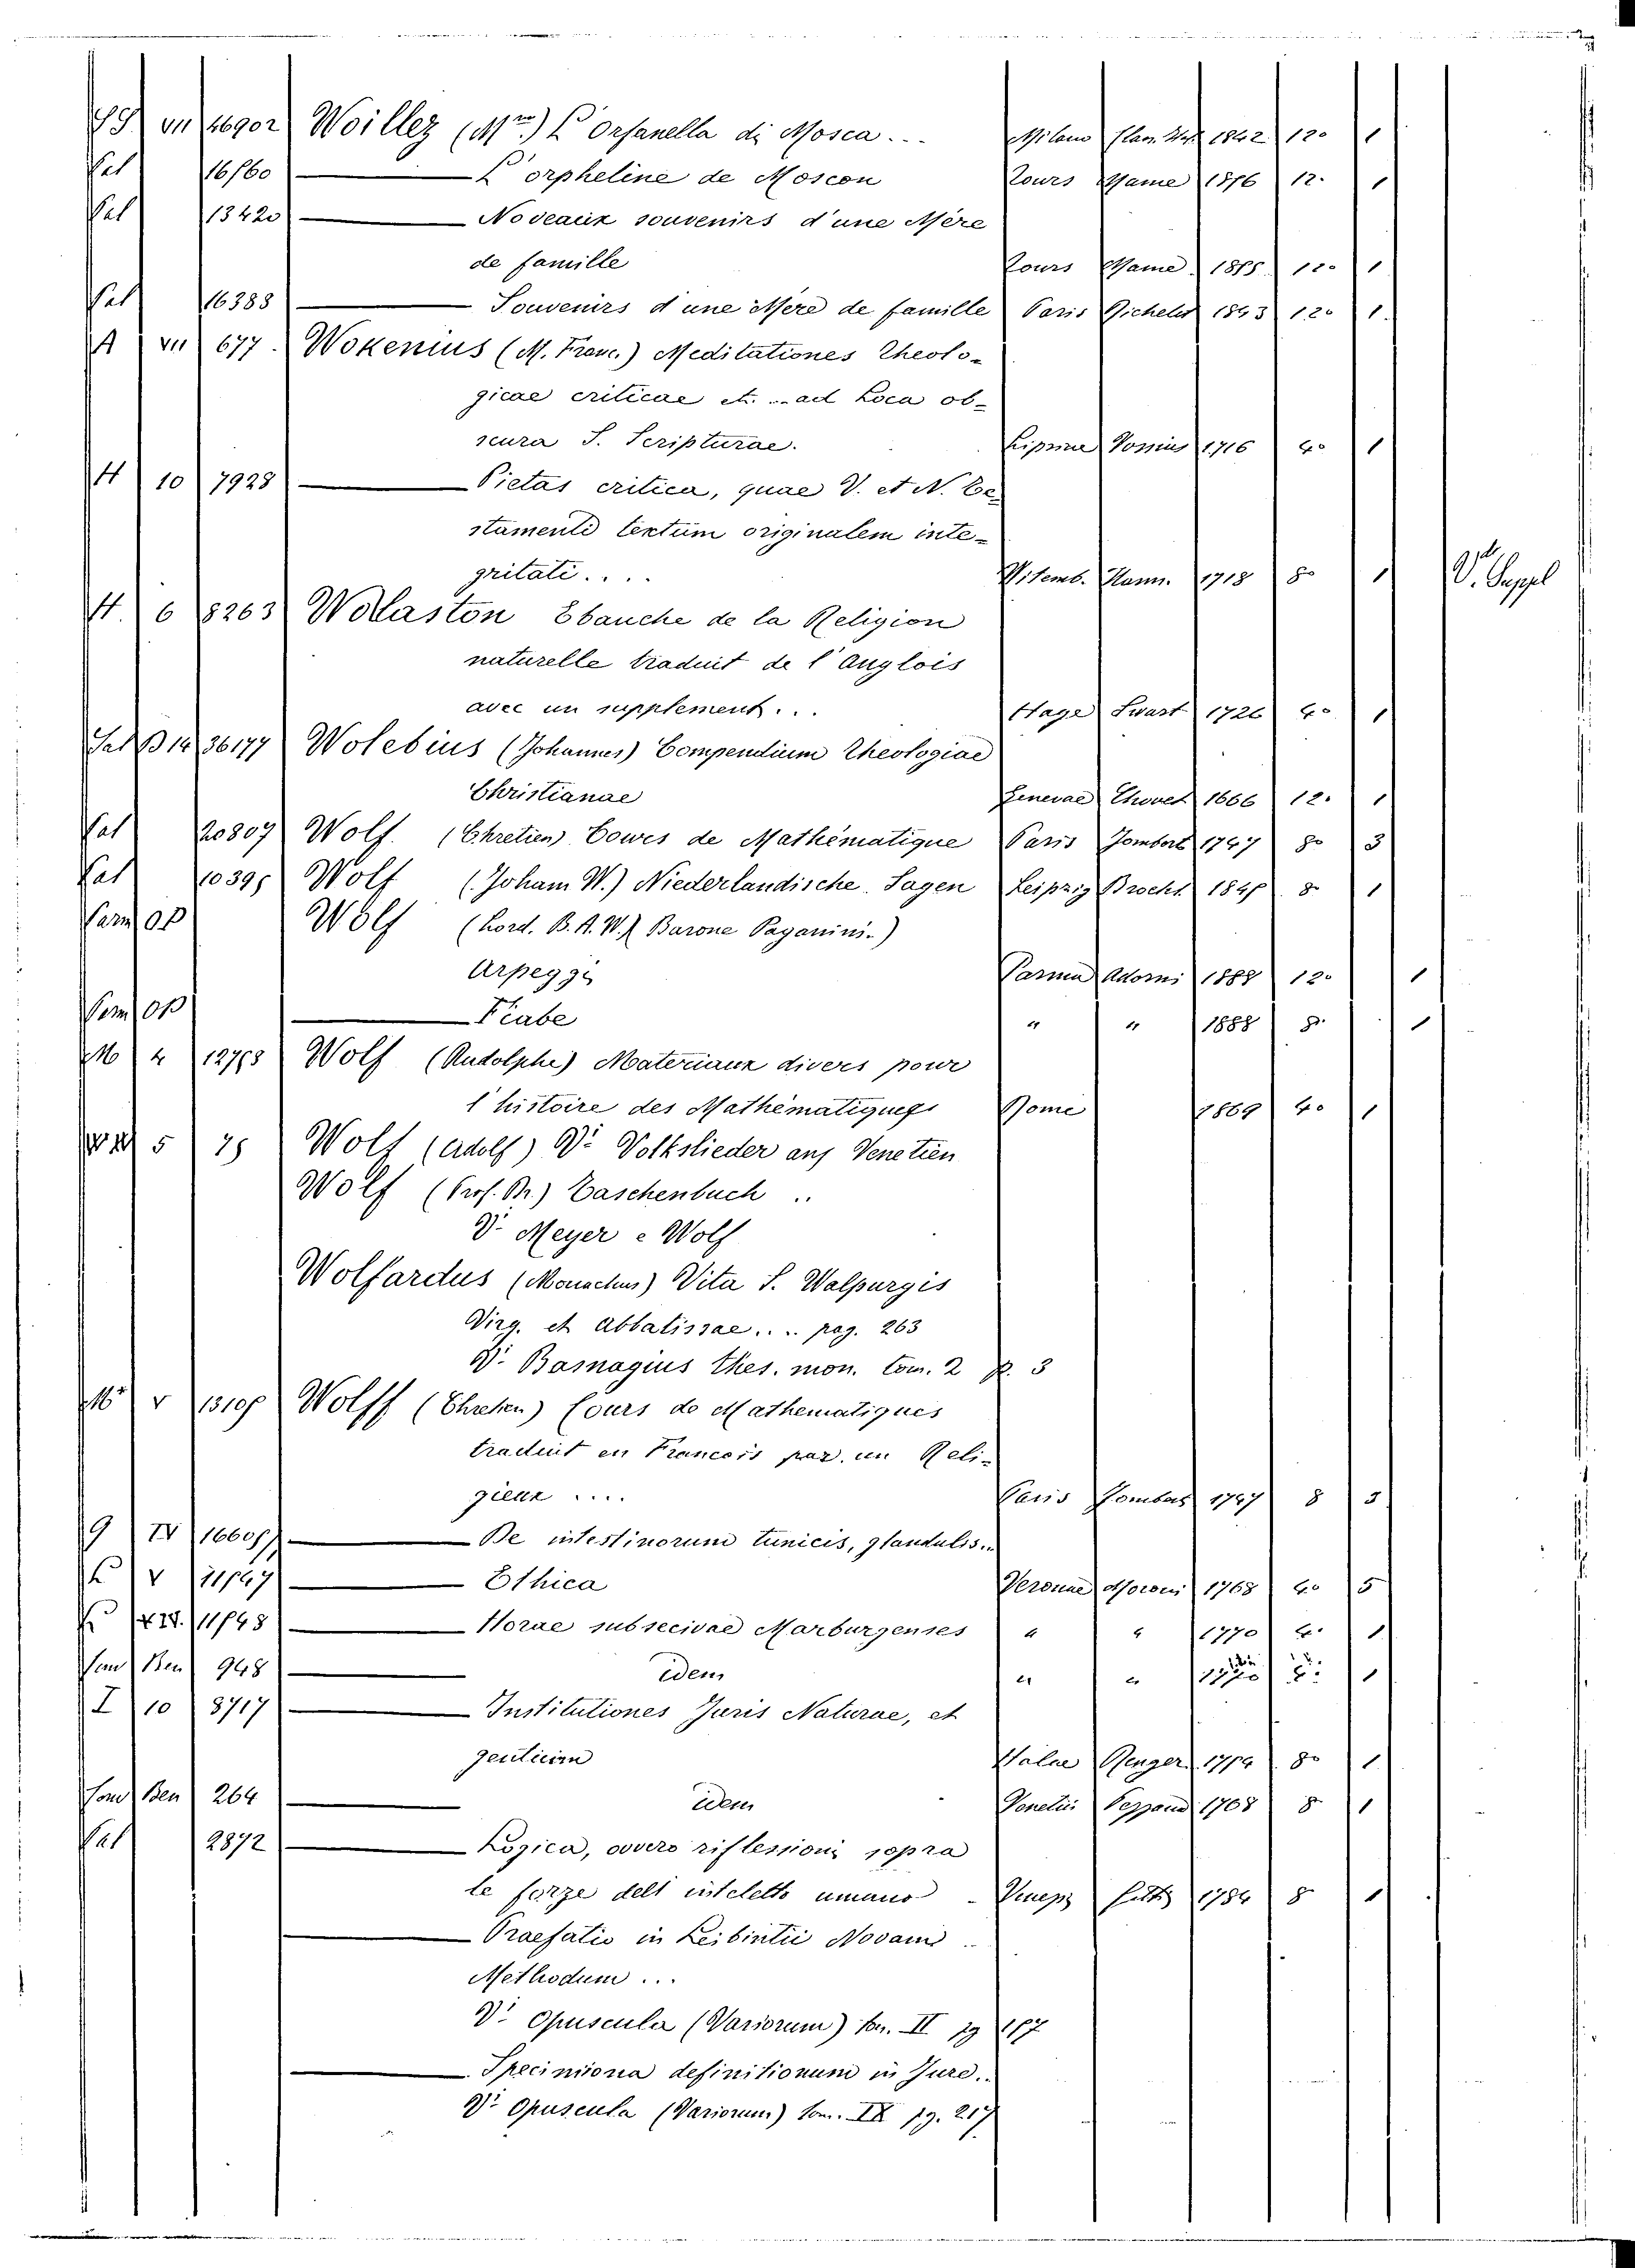 VII 16902 Woillez (Mme) L'Orfanella di Mosca... Milano 1842 12o 1
Sal 16160 — L'orpheline de Moscou Tours Mame 1876 12. 1
Sal 13420 — Noveaux souvenirs d'une Mère
de famille Tours Mame 1875 12o 1
Sal 16388 — Souvenirs d'une Mere de famille Paris 1843 12o 1.
A VII 677. Wokenius (M. Franc.) Meditationes Theolo-
gicae criticae et... ad Loca ob-
scura S. Scripturae. Lipsiae 1716 4o 1
H 10 7928 — Pietas critica, quae V. et N. Te-
stamenti textum originalem inte-
gritati.... Vitemb. Hann. 1718 8o 1 V. Suppl
H. 6 8263 Wolaston Ebauche de la Religion
naturelle traduit de l'Anglois
avec un supplement... Hage Swart 1726 4o 1
Sal B 14 36177 Wolebius (Johannes) Compendium Theologiae
Christianae Genevae Chovet 1666 12. 1
Sal 20807 Wolf. (Chretien) Cowes de Mathématique Paris Jombert 1747 8o 3
Sal 10395 Wolf (Joham W.) Niederlandische Sagen Leipzig Brockh 1 8 1
Wolf (Lord. B. A. W. Barone Paganini.)
Arpeggi Parma Adorni 1888 12o 1
— Fiabe " " 1888 8. 1
4 Wolf (Rudolphe) Materiaux divers pour
l'histoire des Mathématiques Rome 1869 4o 1
5 75 Wolf (Adolf) V. Volkslieder aus Venetien
Wolf (Prof. Dr.) Taschenbuch ..
V. Meyer e Wolf
Wolfardus (Monachus) Vita S. Walpurgis
Virg. et Abbatissae.... pag. 263
V. Basnagius thes. mon. tom. 2 p. 3
V Wolff (Chretien) Cours de Mathematiques
traduit en Francois par un Reli-
gieux .... Paris Jombert 1747 8 3
9 IV — De intestinorum tunicis, glandulis...
V 11847 — Ethica Veronae Moroni 1768 4o 5
11848 — Horae subsecivae Marburgenses " " 1770 4. 1
Ben 948 — idem " " 1770 1
I 10 8717 — Institutiones Juris Naturae, et
gentium Halae Renger. 8o 1
Ben 264 — idem Venetiis Pezzana 1768 8 1
Sal 2872 — Logica, ovvero riflessioni sopra
le forze dell intelletto umano - Venez 1784 8 1
— Praefatio in Leibintii Novam
Methodum ...
V. Opuscula (Variorum) tom. II pg 187
— Speciminona definitionum in Jure..
V. Opuscula (Variorum) tom. IX pg. 217